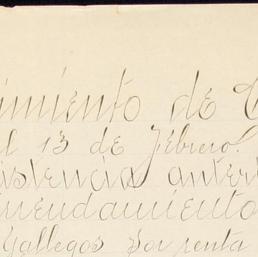 imiento de
l 13 de Febrero.
istencia anter
mendamiento
Gallegos por renta